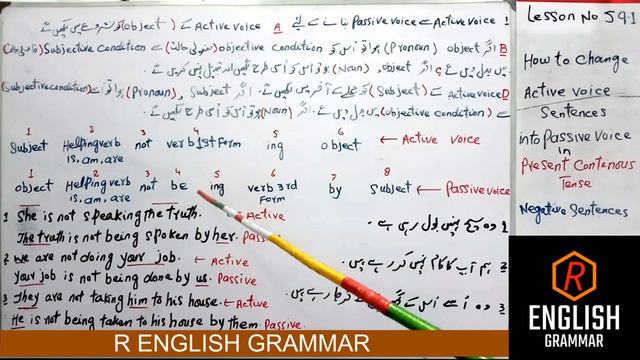 1 Active voice سے Passive voice بنانے کے لیے
A Active voice کے (object) کو شروع میں لکھیں گے
B اگر object (Pronoun) ہو تو اُس کو objective condition (مفعولی حالت) سے Subjective condition (فاعلی حالت)
میں بدل دیں گے اگر object, (Noun) ہو تو اُس کو اُسی طرح لکھیں اور تبدیل نہیں کریں گے
D Active voice کے (Subject) کو جملے کے آخر میں لکھیں گے۔ اگر Subject, (Pronoun) ہو تو اُسے (Subjective condition)
سے (objective condition) میں بدل دیں گے۔ اگر (Noun) ہو تو اُس کو اُسی طرح لکھیں گے
1 2 3 4 5 6
Subject Helping verb not verb 1st Form ing object ← Active voice
is, am, are
1 2 3 4 5 6 7 8
object Helping verb not be ing verb 3rd by Subject ← Passive voice
is, am, are Form
1 She is not speaking the truth. ← Active
The truth is not being spoken by her. Passive
1 وہ سچ نہیں بول رہی ہے۔
2 we are not doing your job. ← Active
your job is not being done by us. Passive
2 ہم آپ کا کام نہیں کر رہے ہیں۔
3 They are not taking him to his house. ← Active
He is not being taken to his house by them. Passive.
3 وہ اُسے اُس کے گھر نہیں لے کر جا رہے ہیں۔
Lesson No 591
How to change
Active voice
Sentences
into Passive voice
in
Present Contenous
Tense
Negative Sentences
R
ENGLISH
GRAMMAR
R ENGLISH GRAMMAR